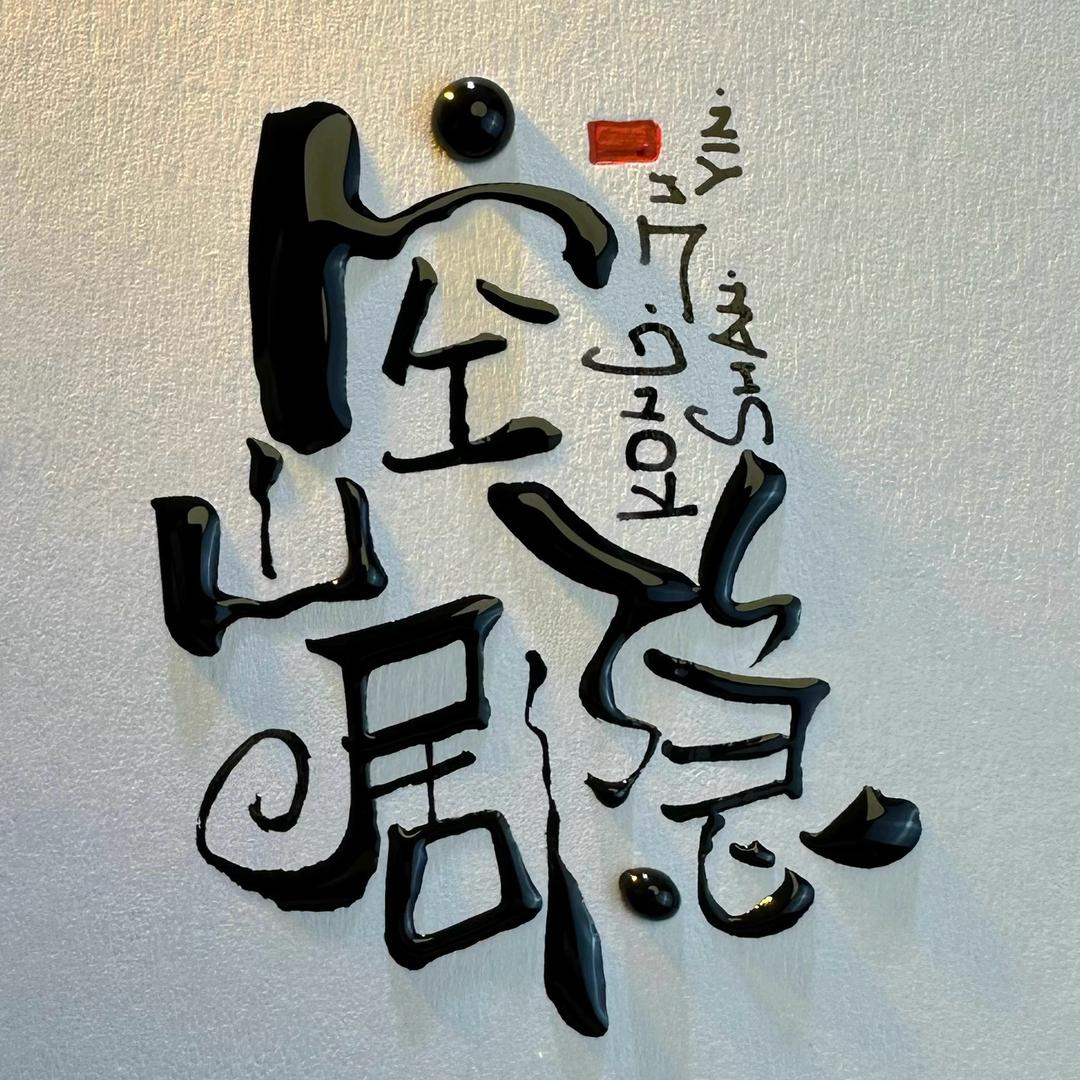 空
山
居隐
KONG. JU
SHAN. YIN.